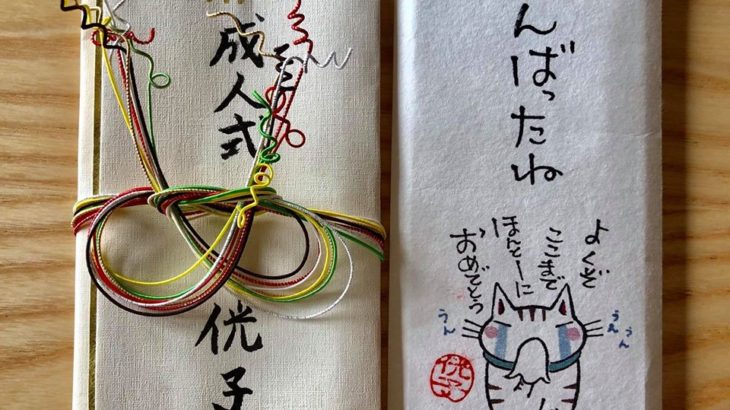 成人式
侊子
んばったね
よくぞ
ここまで
ほんとーに
おめでとう
うん
うん
うん